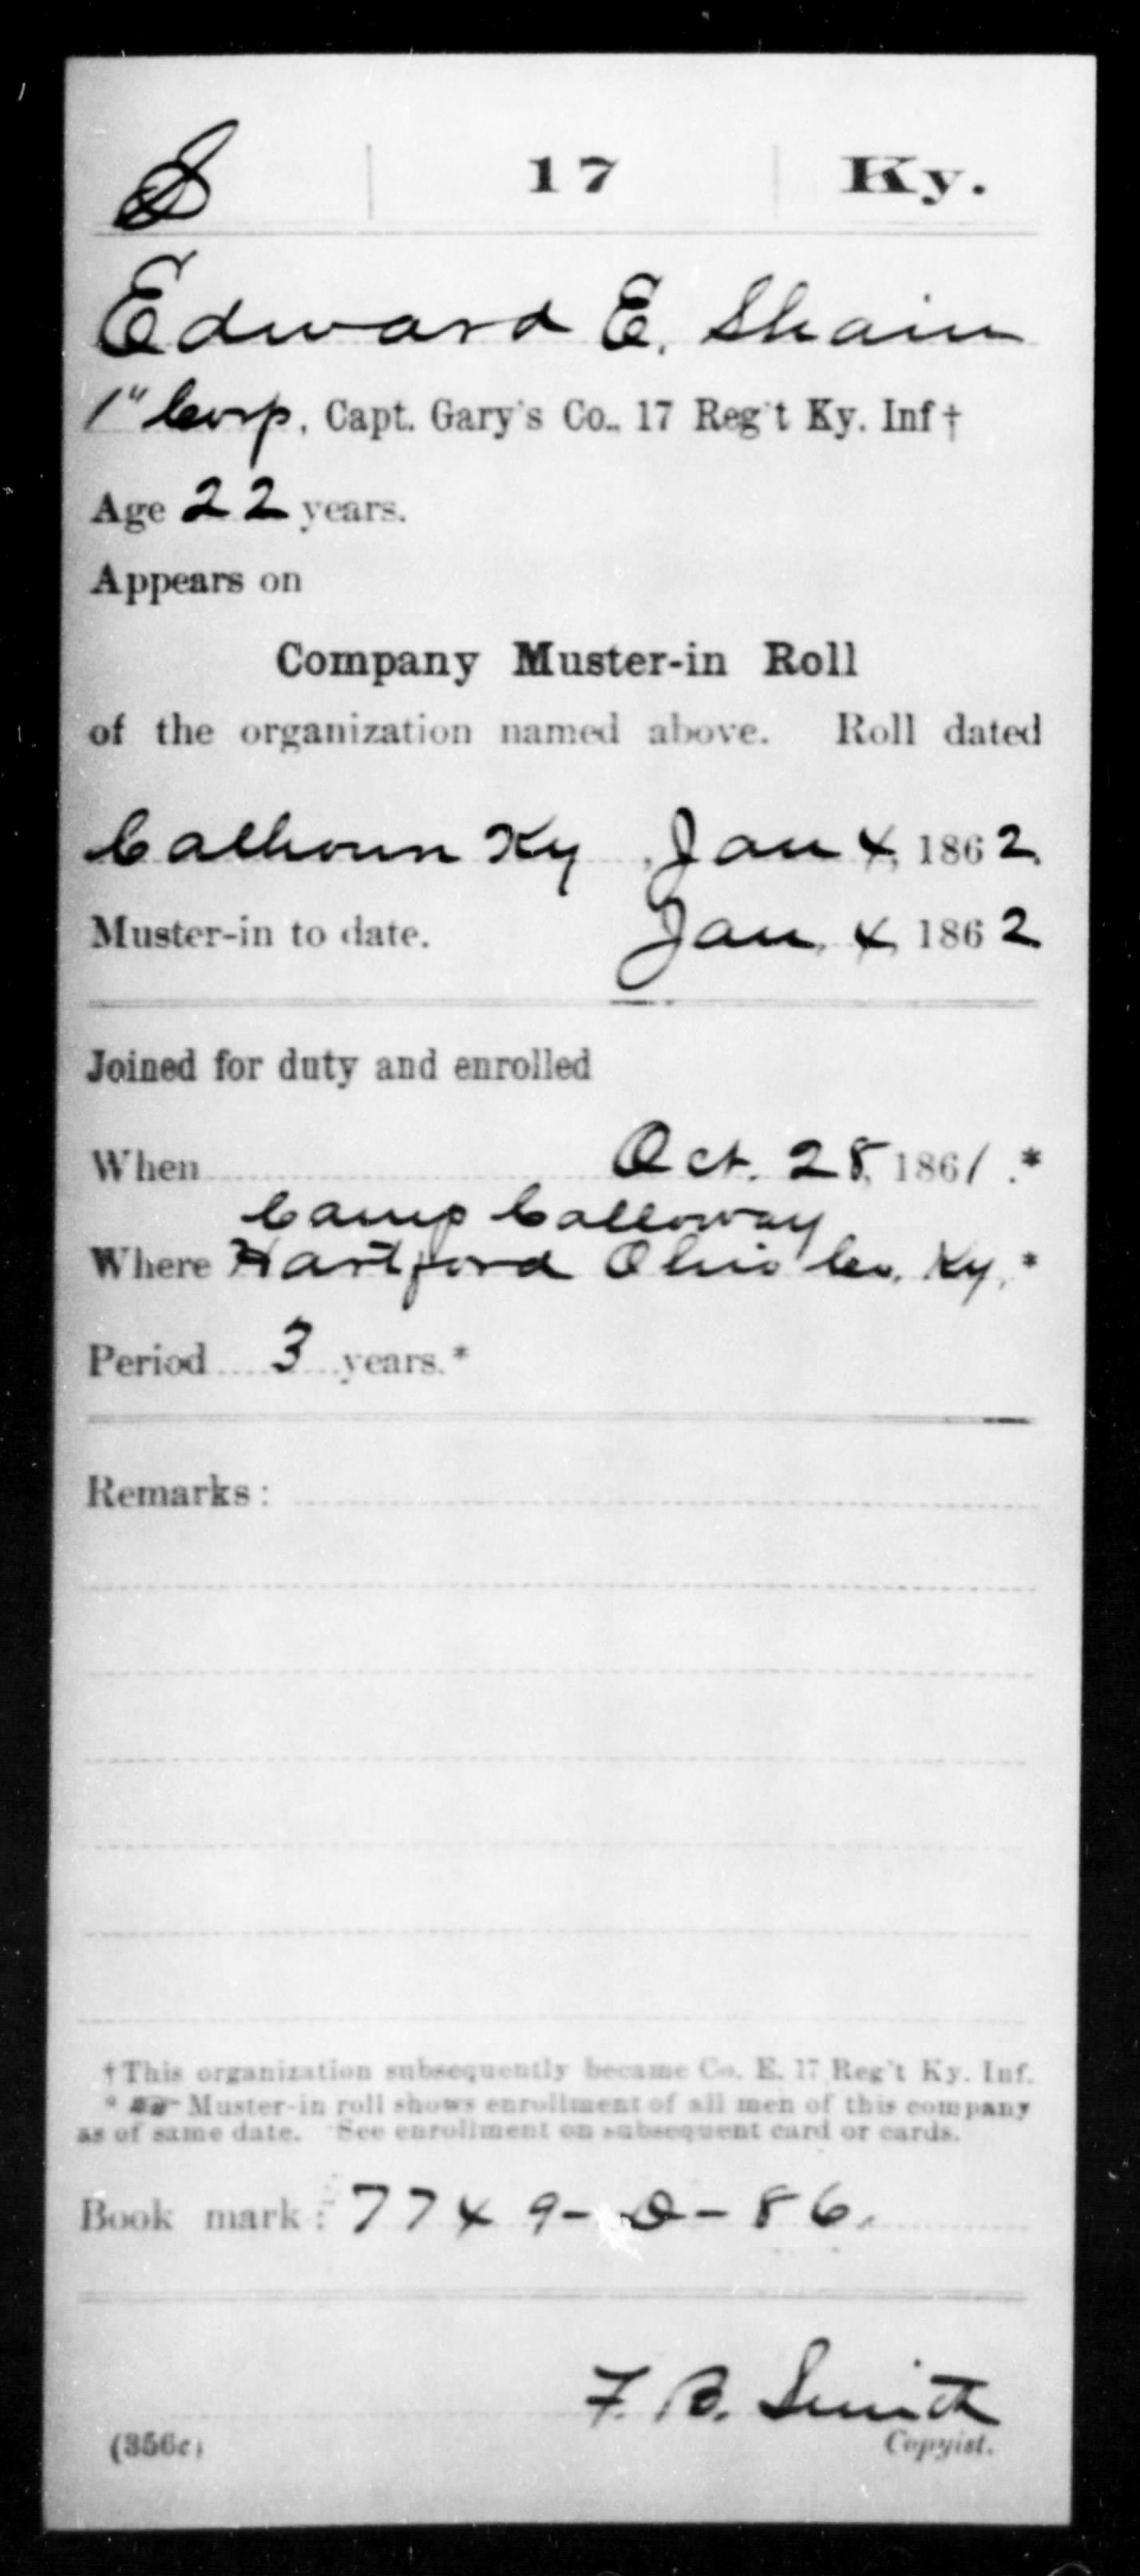 S 17 Ky.
Edward E. Shain
1" Corp, Capt. Gary's Co., 17 Reg't Ky. Inf †
Age 22 years.
Appears on
Company Muster-in Roll
of the organization named above. Roll dated
Calhoun Ky, Jan 4, 1862.
Muster-in to date. Jan. 4, 1862
Joined for duty and enrolled
When Oct. 28, 1861.*
Camp Calloway
Where Hartford Ohio Co. Ky.*
Period 3 years.*
Remarks:
†This organization subsequently became Co. E. 17 Reg't Ky. Inf.
* Muster-in roll shows enrollment of all men of this company
as of same date. See enrollment on subsequent card or cards.
Book mark: 7749-O-86.
F. B. Smith
(356c) Copyist.